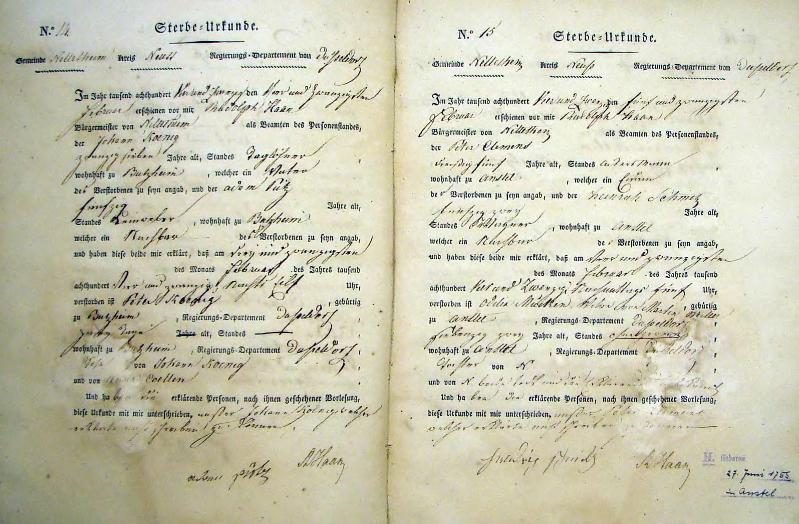 N.º 14 Sterbe-Urkunde.
Gemeinde Nettesheim Kreis Neuss Regierungs-Departement von Düsseldorf
Im Jahr tausend achthundert Vier und Zwanzig den Vier und zwanzigsten
Februar erschienen vor mir Rudolph Haan
Bürgermeister von Nettesheim als Beamten des Personenstandes,
der Johann Koenig
zwanzig sieben Jahre alt, Standes Taglöhner
wohnhaft zu Butzheim, welcher ein Vater
des Verstorbenen zu seyn angab, und der adam Pütz
fünfzig Jahre alt,
Standes Leinweber, wohnhaft zu Butzheim
welcher ein Nachbar des Verstorbenen zu seyn angab,
und haben diese beide mir erklärt, daß am vier und zwanzigsten
des Monats Februar des Jahres tausend
achthundert Vier und zwanzig Nachts Eilf Uhr,
verstorben ist Peter Koenig, gebürtig
zu Butzheim, Regierungs-Departement Düsseldorf
Tage Jahre alt, Standes
wohnhaft zu Butzheim, Regierungs-Departement Düsseldorf
Sohn von Johann Koenig
und von Coellen
Und haben die erklärende Personen, nach ihnen geschehener Vorlesung,
diese Urkunde mit mir unterschrieben, außer Johann Koenig welcher
erklärte nicht schreiben zu können.
adam pütz RHaan
N.º 15 Sterbe-Urkunde.
Gemeinde Nettesheim Kreis Neuss Regierungs-Departement von Düsseldorf
Im Jahr tausend achthundert Vier und Zwanzig den fünf und zwanzigsten
Februar erschienen vor mir Rudolph Haan
Bürgermeister von Nettesheim als Beamten des Personenstandes,
der Peter Clemens
fünf Jahre alt, Standes Ackersmann
wohnhaft zu Anstel, welcher ein
der Verstorbenen zu seyn angab, und der Henrich Schmitz
fünfzig zwey Jahre alt,
Standes, wohnhaft zu Anstel
welcher ein Nachbar der Verstorbenen zu seyn angab,
und haben diese beide mir erklärt, daß am Vier und zwanzigsten
des Monats Februar des Jahres tausend
achthundert Vier und Zwanzig Nachmittags fünf Uhr,
verstorben ist Odilia, gebürtig
zu Anstel, Regierungs-Departement Düsseldorf
siebenzig zwey Jahre alt, Standes
wohnhaft zu Anstel, Regierungs-Departement Düsseldorf
Tochter von N
und von N.
Und haben die erklärende Personen, nach ihnen geschehener Vorlesung,
diese Urkunde mit mir unterschrieben, außer Peter Clemens
welcher erklärte nicht schreiben zu können
schmitz RHaan
H. Geboren
27. Juni 1755
in Anstel